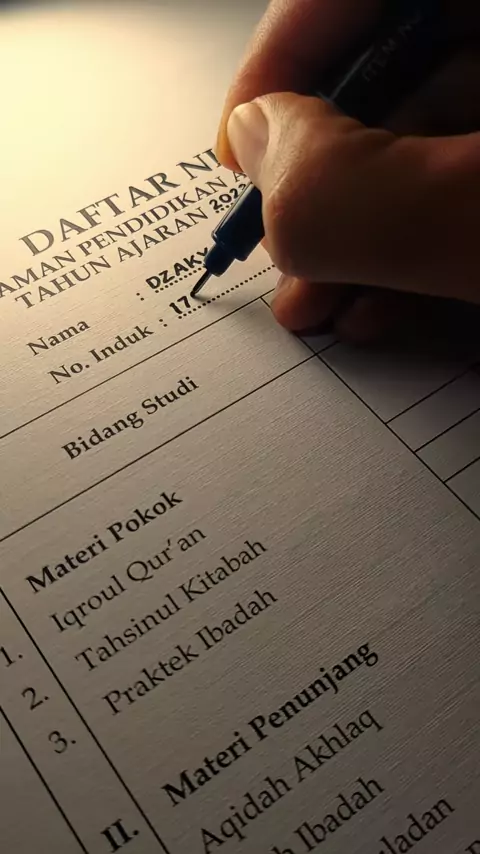 DAFTAR
AMAN PENDIDIKAN
TAHUN AJARAN 2023
Nama : DZAKY
No. Induk : 17
Bidang Studi
Materi Pokok
1. Iqroul Qur'an
2. Tahsinul Kitabah
3. Praktek Ibadah
II. Materi Penunjang
Aqidah Akhlaq
h Ibadah
ladan